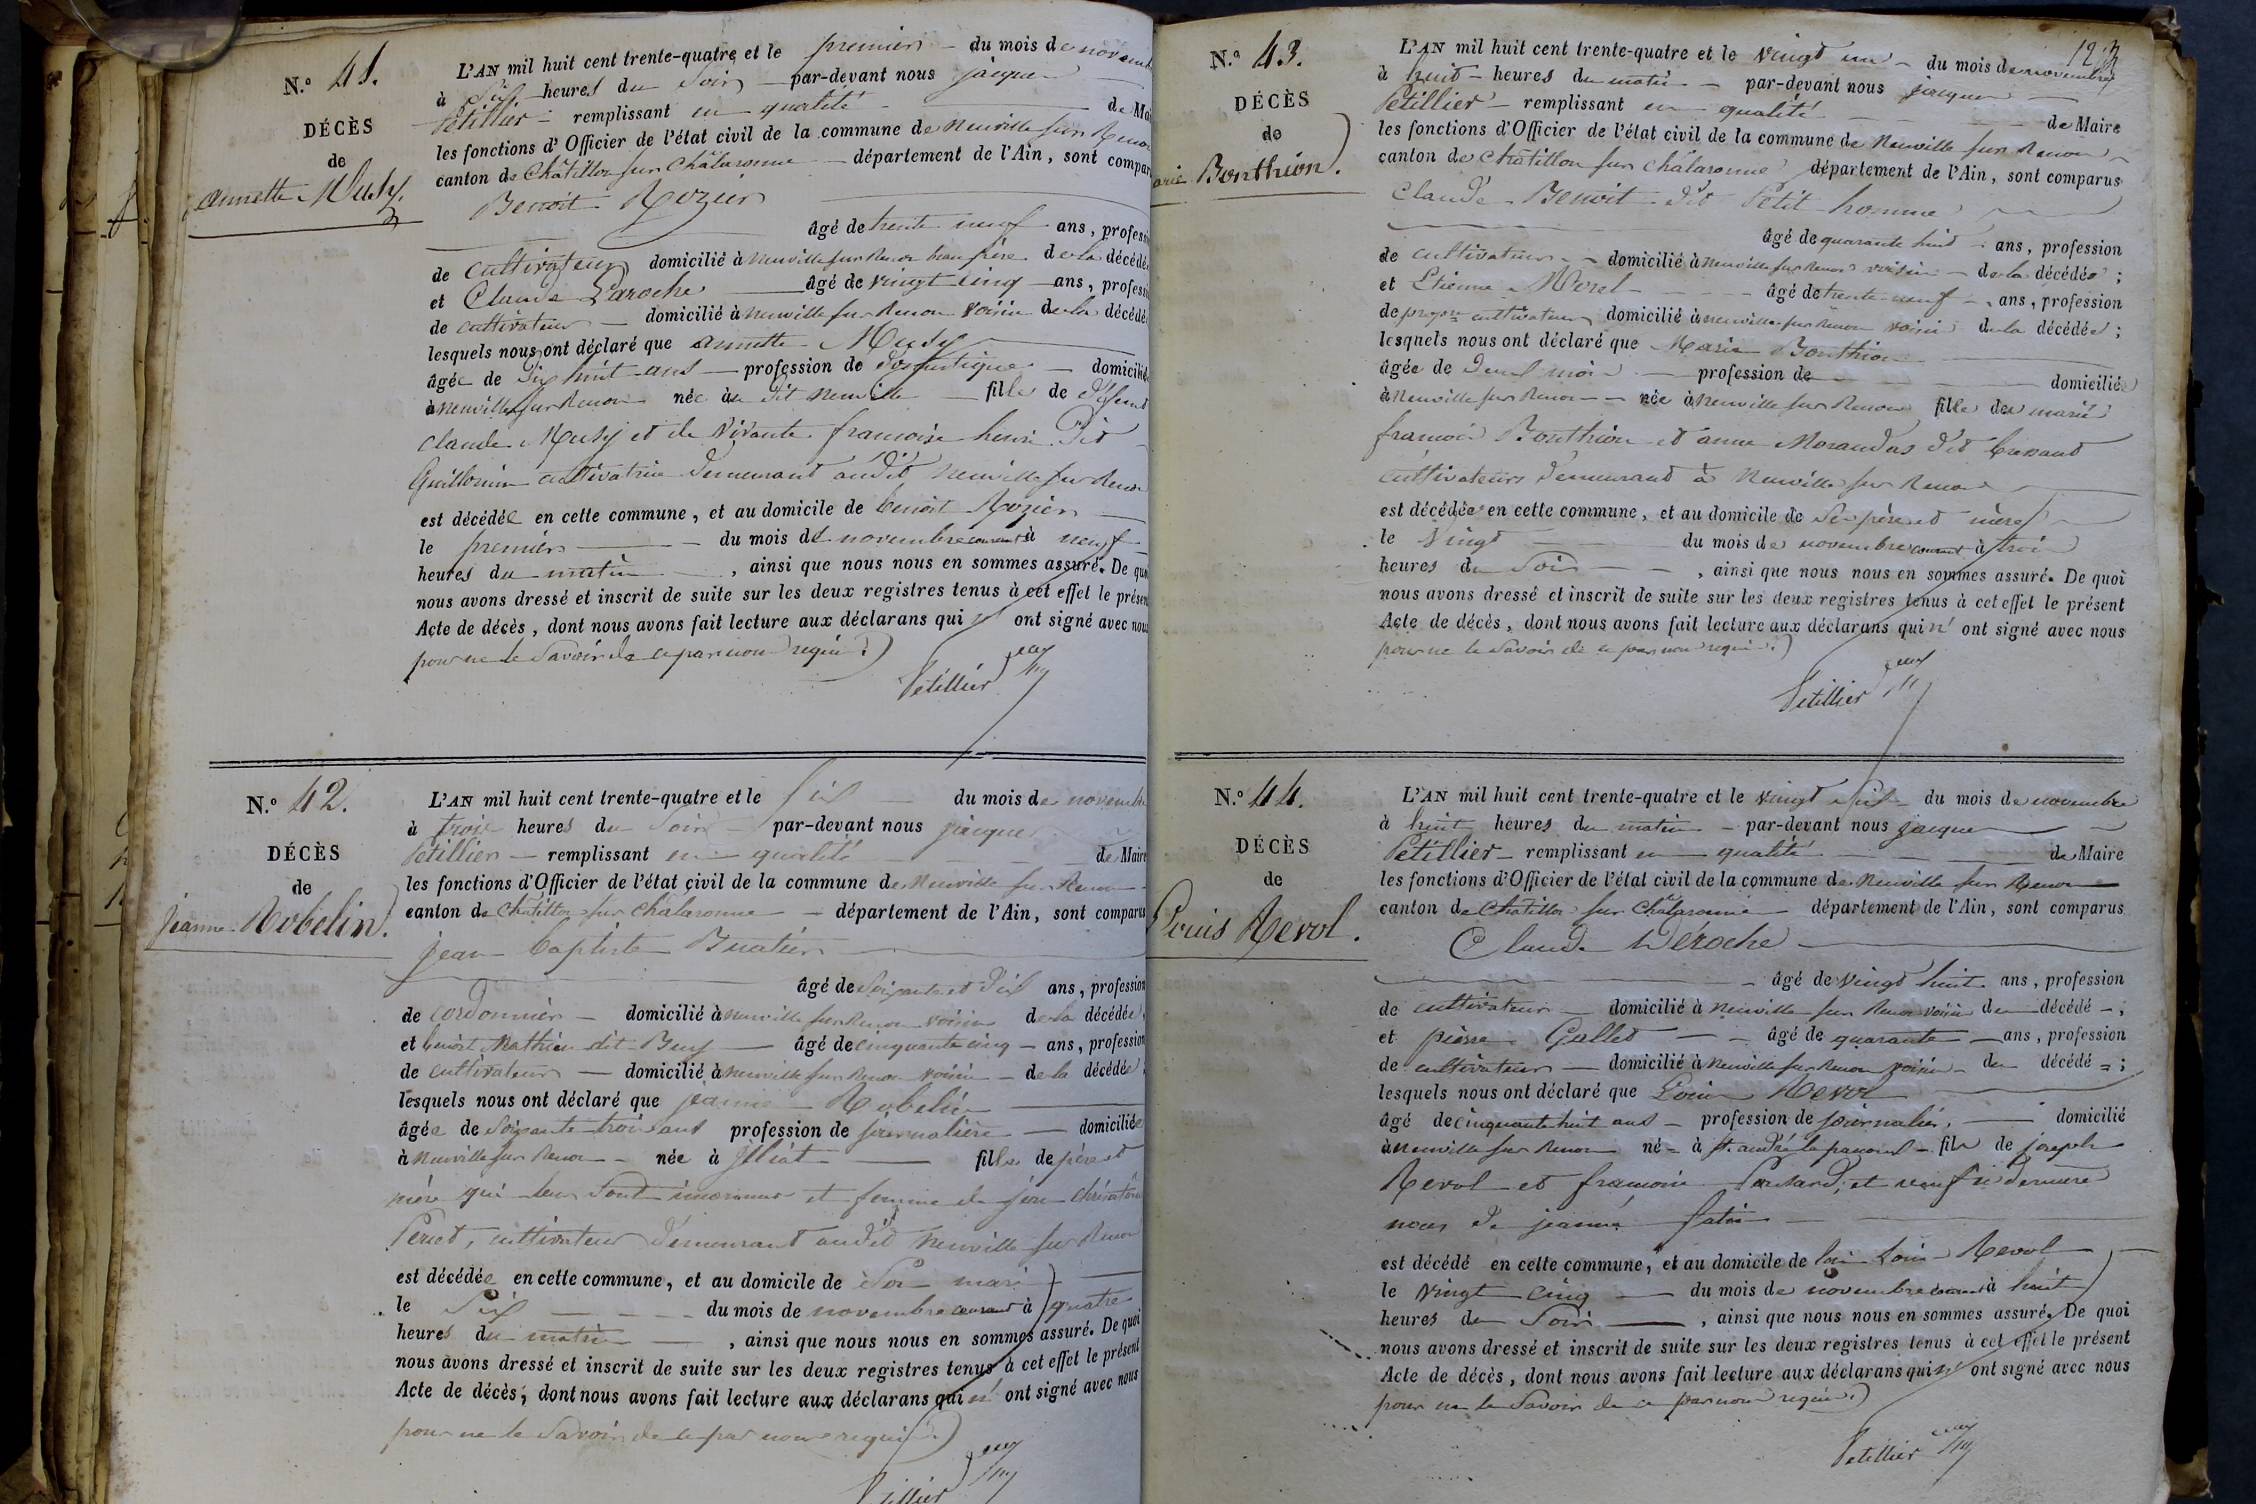 N.º 41.
DÉCÈS
de
Annette Musy.
L'AN mil huit cent trente-quatre et le premier du mois de novembre
à six heures du Soir par-devant nous jacques
Petillier remplissant en qualité de Mai
les fonctions d'Officier de l'état civil de la commune de Neuville sur Renon
canton de Châtillon sur Chalaronne département de l'Ain, sont compar
Benoit Rozier
âgé de trente neuf ans, professi
de Cultivateur domicilié à Neuville sur Renon beau frère de la décédé
et Claude Laroche âgé de vingt cinq ans, professi
de cultivateur domicilié à neuville sur Renon voisin de la décédé
lesquels nous ont déclaré que annette Musy
âgée de Dix huit ans profession de Domestique domicilié
à neuville sur Renon née à dit neuville fille de défunt
claude Musy et de vivante francoise henri dit
Guillermin cultivatrice demeurant audit Neuville sur Renon
est décédée en cette commune, et au domicile de benoit Rozier
le premier du mois de novembre courant à neuf
heures du matin, ainsi que nous nous en sommes assuré. De quoi
nous avons dressé et inscrit de suite sur les deux registres tenus à cet effet le présen
Acte de décès, dont nous avons fait lecture aux déclarans qui n' ont signé avec nous
pour ne le Savoir de ce par nous requis.
Petillier
N.º 42.
DÉCÈS
de
jeanne Robelin.
L'AN mil huit cent trente-quatre et le Six du mois de novembre
à trois heures du Soir par-devant nous jacques
Petillier remplissant en qualité de Maire
les fonctions d'Officier de l'état civil de la commune de Neuville sur Renon
canton de Châtillon sur Chalaronne département de l'Ain, sont comparus
jean baptiste Buatier
âgé de Soixante et dix ans, profession
de cordonnier domicilié à neuville sur Renon voisin de la décédée
et benoit Mathieu dit Buy âgé de cinquante cinq ans, profession
de cultivateur domicilié à neuville sur Renon voisin de la décédée
lesquels nous ont déclaré que jeanne Robelin
âgée de Soixante trois ans profession de journalière domiciliée
à Neuville sur Renon née à illiat fille de père et
mère qui leur Sont inconnus et femme de
Peruet, cultivateur demeurant audit Neuville sur Renon
est décédée en cette commune, et au domicile de Son mari
le Six du mois de novembre courant à quatre
heures du matin, ainsi que nous nous en sommes assuré. De quoi
nous avons dressé et inscrit de suite sur les deux registres tenus à cet effet le présent
Acte de décès, dont nous avons fait lecture aux déclarans qui n' ont signé avec nous
pour ne le Savoir de ce par nous requis.
Petillier
123
N.º 43.
DÉCÈS
de
arie Bonthion.
L'AN mil huit cent trente-quatre et le vingt un du mois de novembre
à huit heures du matin par-devant nous jacques
Petillier remplissant en qualité de Maire
les fonctions d'Officier de l'état civil de la commune de Neuville sur Renon
canton de Châtillon sur Chalaronne département de l'Ain, sont comparus
Claude Benoit dit Petit homme
âgé de quarante huit ans, profession
de cultivateur domicilié à neuville sur Renon voisin de la décédée ;
et Etienne Morel âgé de trente neuf ans, profession
de propre cultivateur domicilié à neuville sur Renon voisin de la décédée ;
lesquels nous ont déclaré que Marie Bonthion
âgée de Deux mois profession de domiciliée
à Neuville sur Renon née à Neuville sur Renon fille des mariés
francois Bonthion et anne Morandas dit
cultivateurs demeurant à Neuville sur Renon
est décédée en cette commune, et au domicile de Ses père et mère
le vingt du mois de novembre courant à trois
heures du Soir, ainsi que nous nous en sommes assuré. De quoi
nous avons dressé et inscrit de suite sur les deux registres tenus à cet effet le présent
Acte de décès, dont nous avons fait lecture aux déclarans qui n' ont signé avec nous
pour ne le Savoir de ce par nous requis.
Petillier
N.º 44.
DÉCÈS
de
Louis Revol.
L'AN mil huit cent trente-quatre et le vingt six du mois de novembre
à huit heures du matin par-devant nous jacques
Petillier remplissant en qualité de Maire
les fonctions d'Officier de l'état civil de la commune de Neuville sur Renon
canton de Châtillon sur Chalaronne département de l'Ain, sont comparus
Claude Déroche
âgé de vingt huit ans, profession
de cultivateur domicilié à Neuville sur Renon voisin du décédé ;
et pierre Gallet âgé de quarante ans, profession
de cultivateur domicilié à Neuville sur Renon voisin du décédé ;
lesquels nous ont déclaré que Louis Revol
âgé de cinquante huit ans profession de journalier, domicilié
à neuville sur Renon né à St. andré le panoux fils de joseph
Revol et francoise et veuf en dernière
noces de jeanne
est décédé en cette commune, et au domicile de Louis Revol
le vingt cinq du mois de novembre courant à huit
heures du Soir, ainsi que nous nous en sommes assuré. De quoi
nous avons dressé et inscrit de suite sur les deux registres tenus à cet effet le présent
Acte de décès, dont nous avons fait lecture aux déclarans qui n' ont signé avec nous
pour ne le Savoir de ce par nous requis.
Petillier